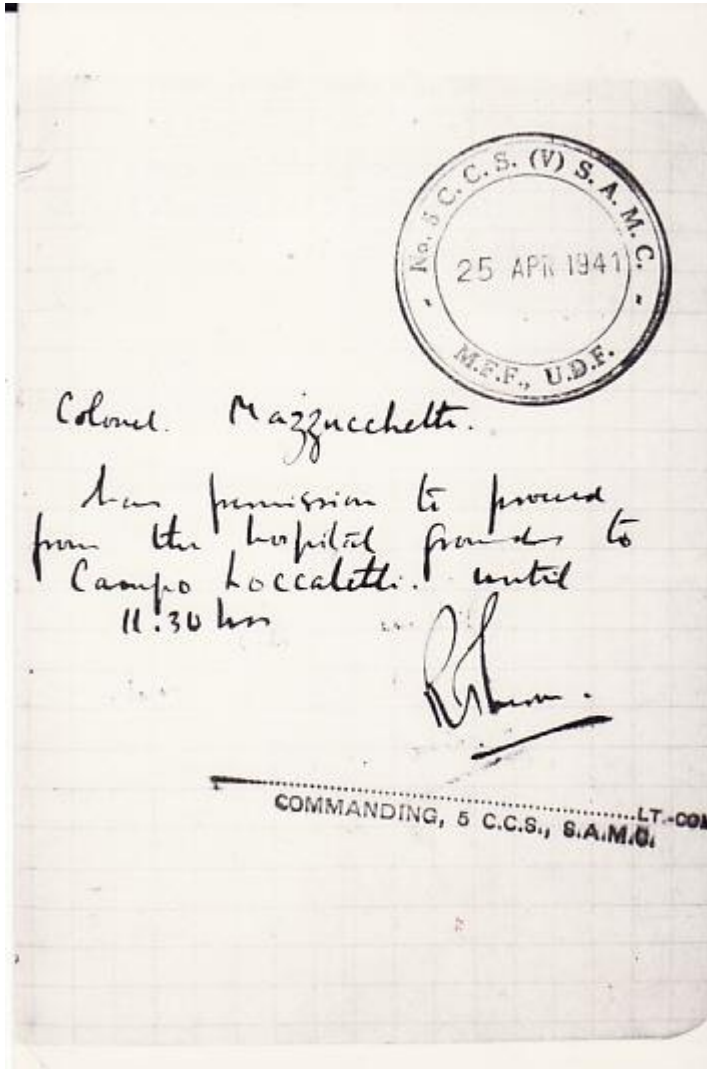 - No. 5 C. C. S. (V) S. A. M. C. -
25 APR 1941
M.F.F., U.D.F.
Colonel. Mazzucchetti.
has permission to proceed
from the hospital grounds to
Campo Loccatelli. until
11.30 hrs
LT.-COL
COMMANDING, 5 C.C.S., S.A.M.C.